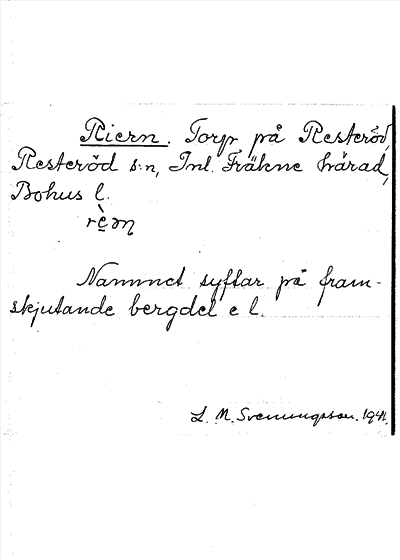 Riern. Torp på Resteröd,
Resteröd s:n, Inl. Fräkne härad,
Bohus l.
Namnet syftar på fram-
skjutande bergdel e l.
L. M. Svenungsson. 1941.